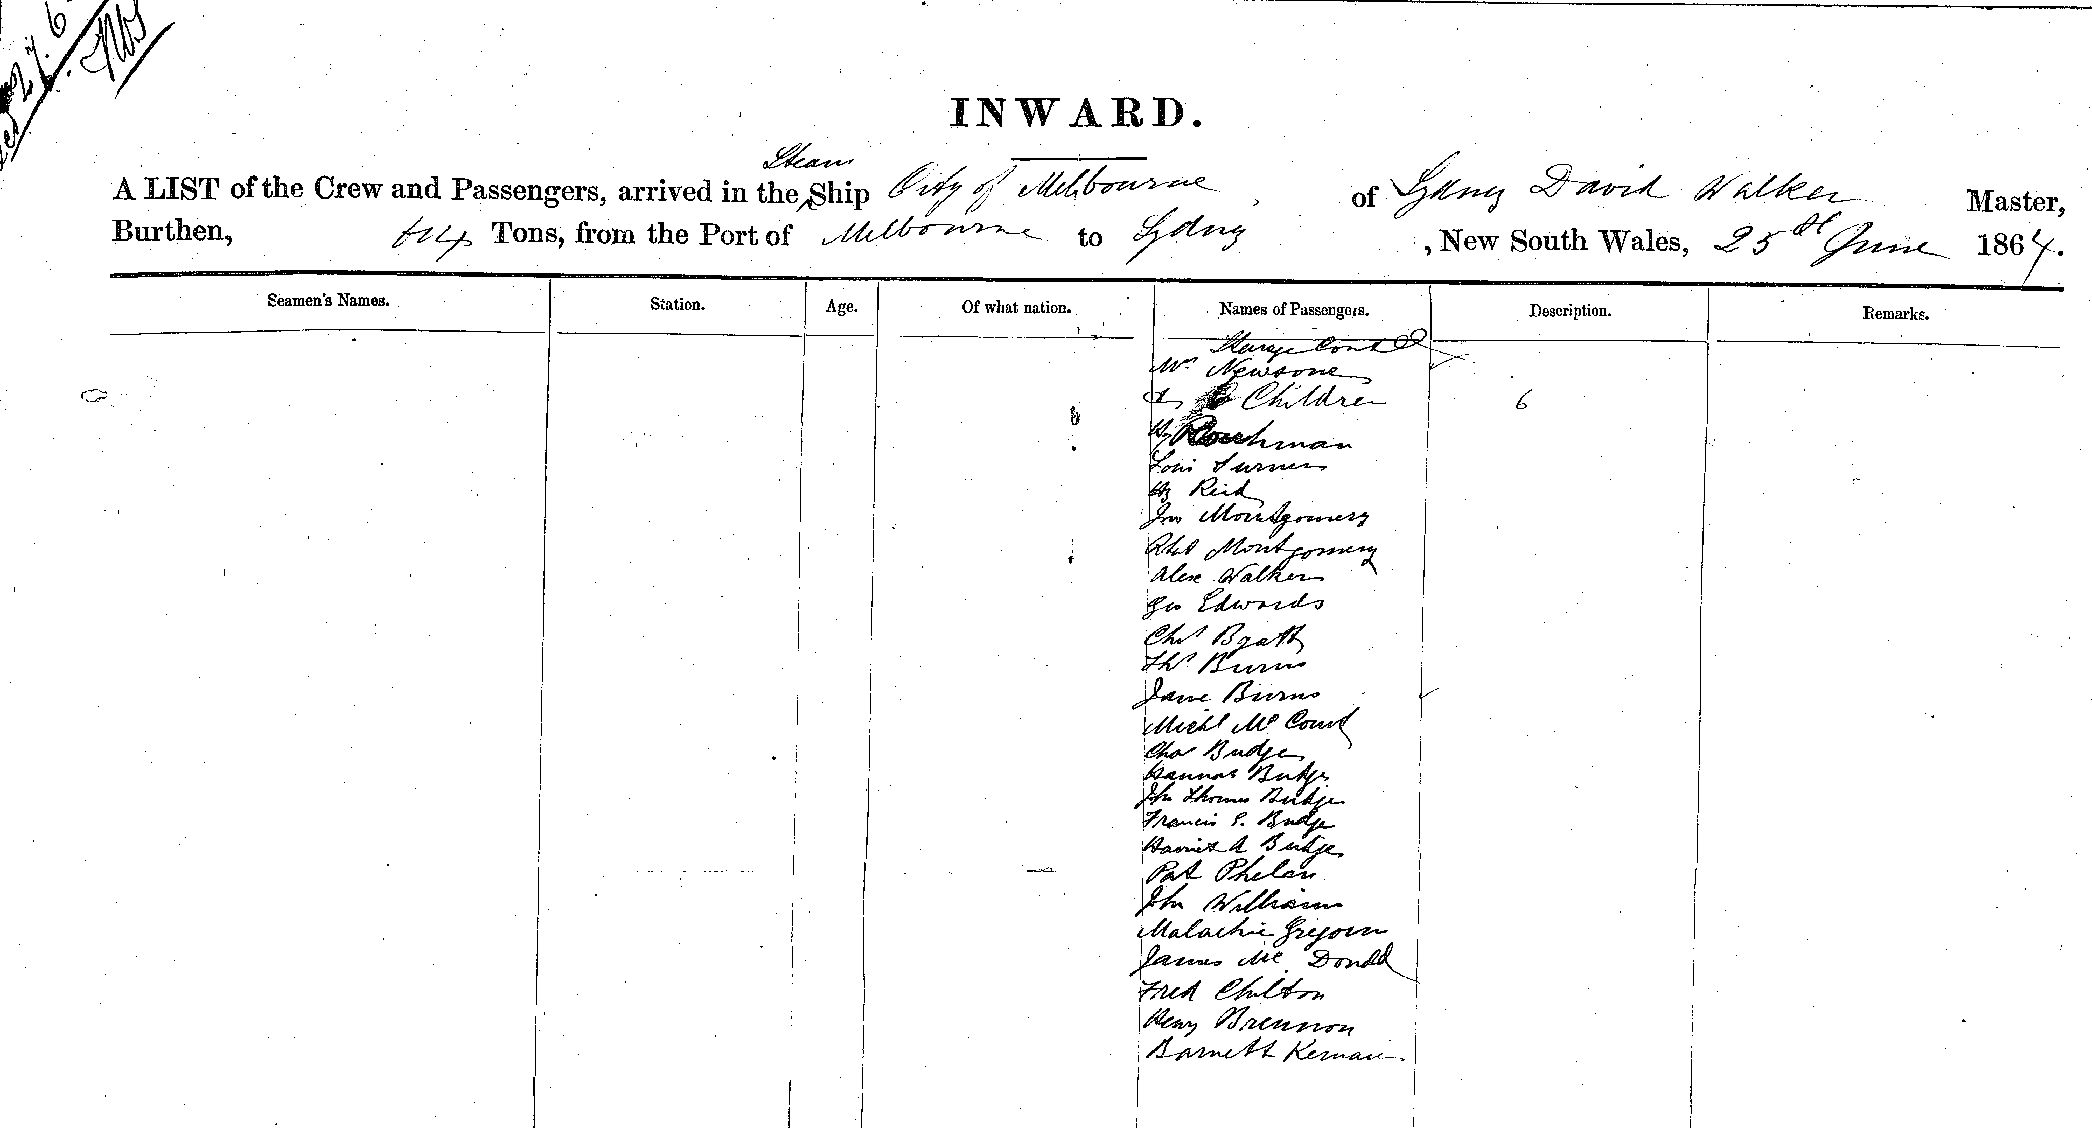 27.6
INWARD.
Steam
A LIST of the Crew and Passengers, arrived in the Ship City of Melbourne of Sydney David Walker Master,
Burthen, Tons, from the Port of Melbourne to Sydney , New South Wales, 25th June 1864.
Seamen's Names. Station. Age. Of what nation. Names of Passengers. Description. Remarks.
Steerage Cont d
Newsone
Children 6
Turner
Hy Reid
Jno Montgomery
Robt Montgomery
Alex Walker
Geo Edwards
Chs Byatt
Ths Burns
Jane Burns
Michl Mc Court
Chas Budge
Hannah Budge
Jhn Thomas Budge
Francis E. Budge
Harriet A Budge
Pat Phelan
Jhn Williams
Malachie
James Mc Donald
Fred Chilton
Henry Brennon
Barnett Kernan